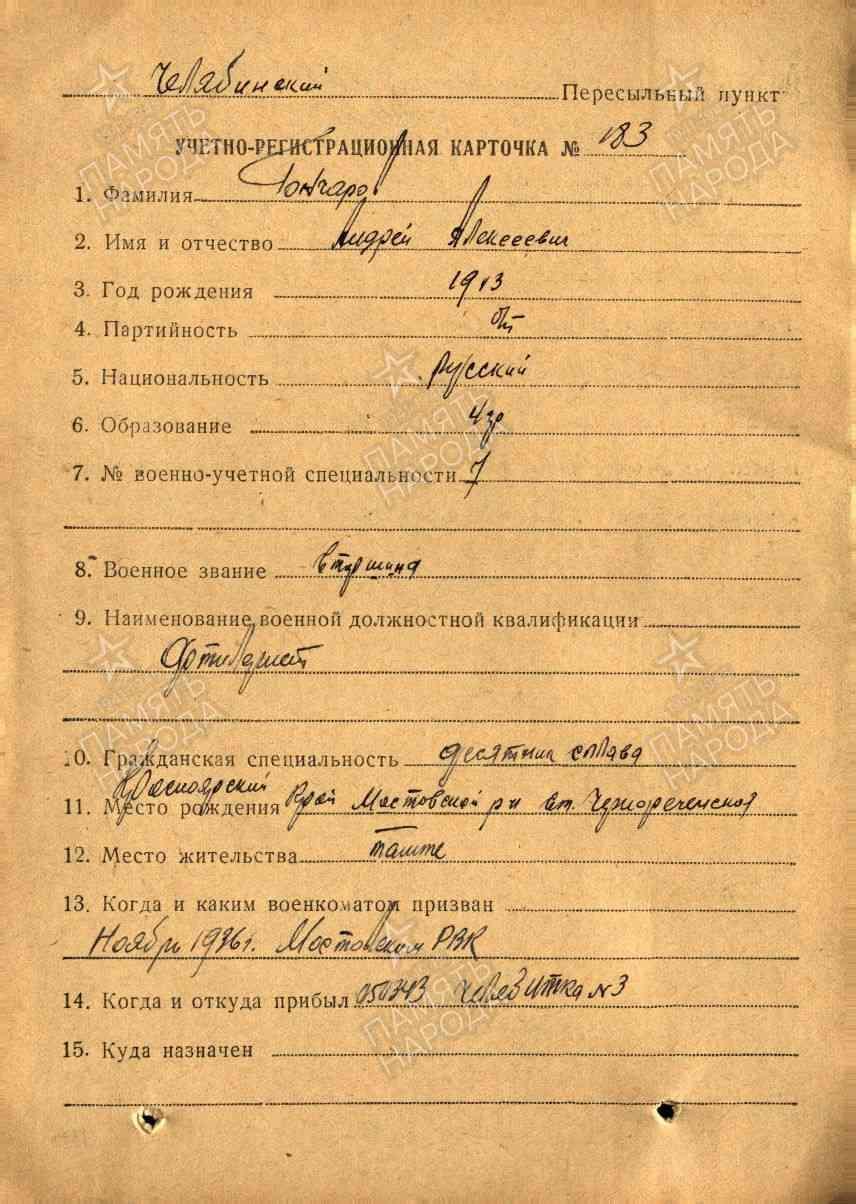 Челябинский Пересыльный пункт
УЧЕТНО-РЕГИСТРАЦИОННАЯ КАРТОЧКА № 183
1. Фамилия Гончаров
2. Имя и отчество Андрей Алексеевич
3. Год рождения 1913
4. Партийность б/п
5. Национальность Русский
6. Образование 4 гр
7. № военно-учетной специальности 7
8. Военное звание Старшина
9. Наименование военной должностной квалификации
Артилерист
10. Гражданская специальность десятник сплава
Красноярский
11. Место рождения Край Мостовской рн ст.
12. Место жительства тамже
13. Когда и каким военкоматом призван
Ноябрь 1936 г. Мостовским РВК
14. Когда и откуда прибыл Челяб итка № 3
15. Куда назначен
ПАМЯТЬ НАРОДА
ПАМЯТЬ НАРОДА
ПАМЯТЬ НАРОДА
ПАМЯТЬ НАРОДА
ПАМЯТЬ НАРОДА
ПАМЯТЬ НАРОДА